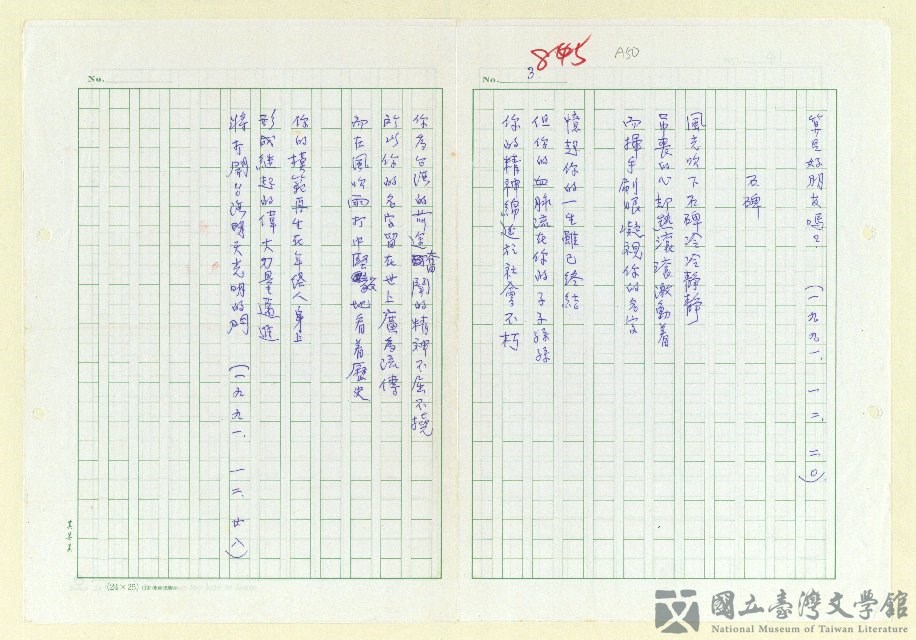 845
A50
No. 3
算是好朋友嗎？（一九九一、一二、二〇）
石碑
風光吹下石碑冷冷靜靜
弔喪的心却熱滾滾激動着
而揮手刷眼凝視你的名字
憶起你的一生雖已終結
但你的血脉流在你的子子孫孫
你的精神綿延於社會不朽
No.
你為台灣的前途奮鬪的精神不屈不撓
所以你的名字留在世上廣為流傳
而在風吹雨打中堅毅地看着歷史
你的模範再生在年輕人身上
形成繼起的偉大力量邁進
將打開台灣明天光明的門（一九九一、一二、廿八）
(24×25)
國立臺灣文學館
National Museum of Taiwan Literature